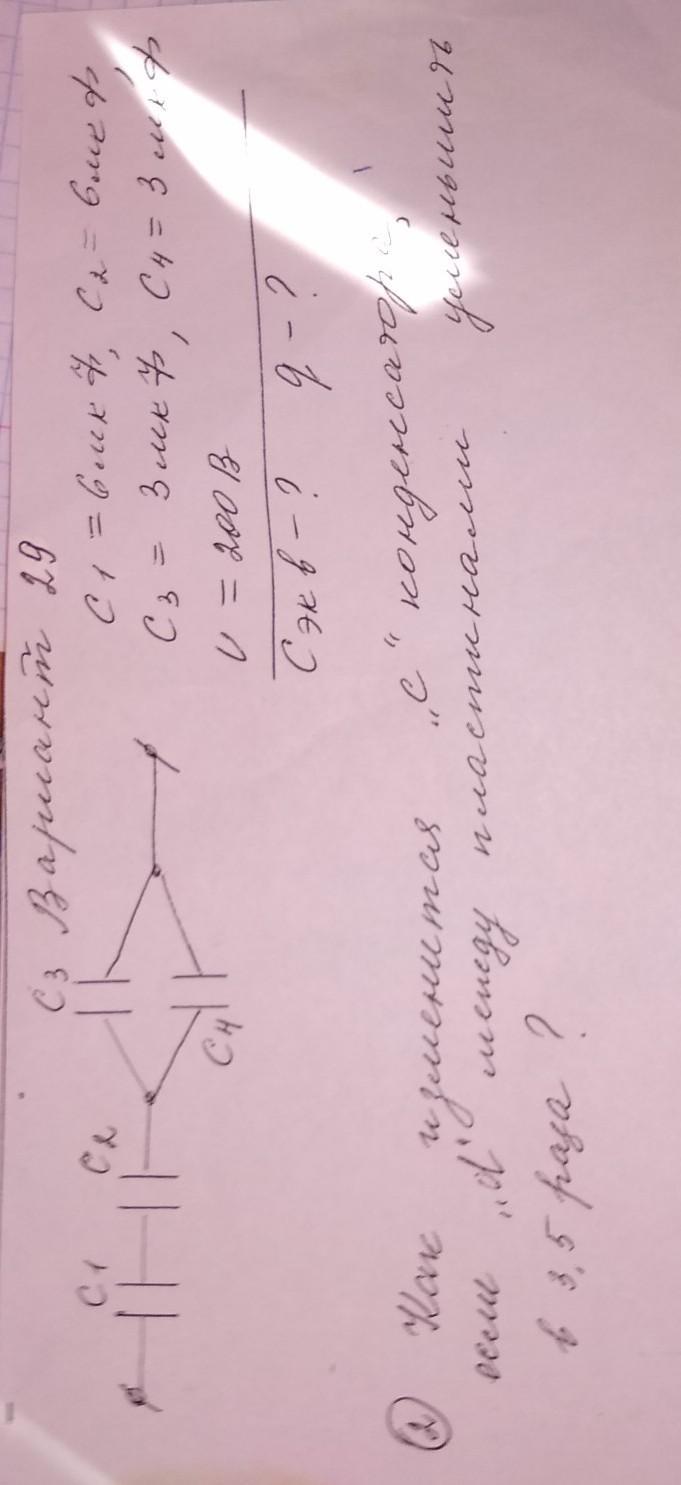 Вариант 29
C3
C1 C2
C4
C1 = 6мкФ, C2 = 6мкФ,
C3 = 3мкФ, C4 = 3мкФ
U = 200В
Cэкв - ? q - ?
2 Как изменится „C“ конденсатора,
если „d“ между пластинами уменьшить
в 3,5 раза ?